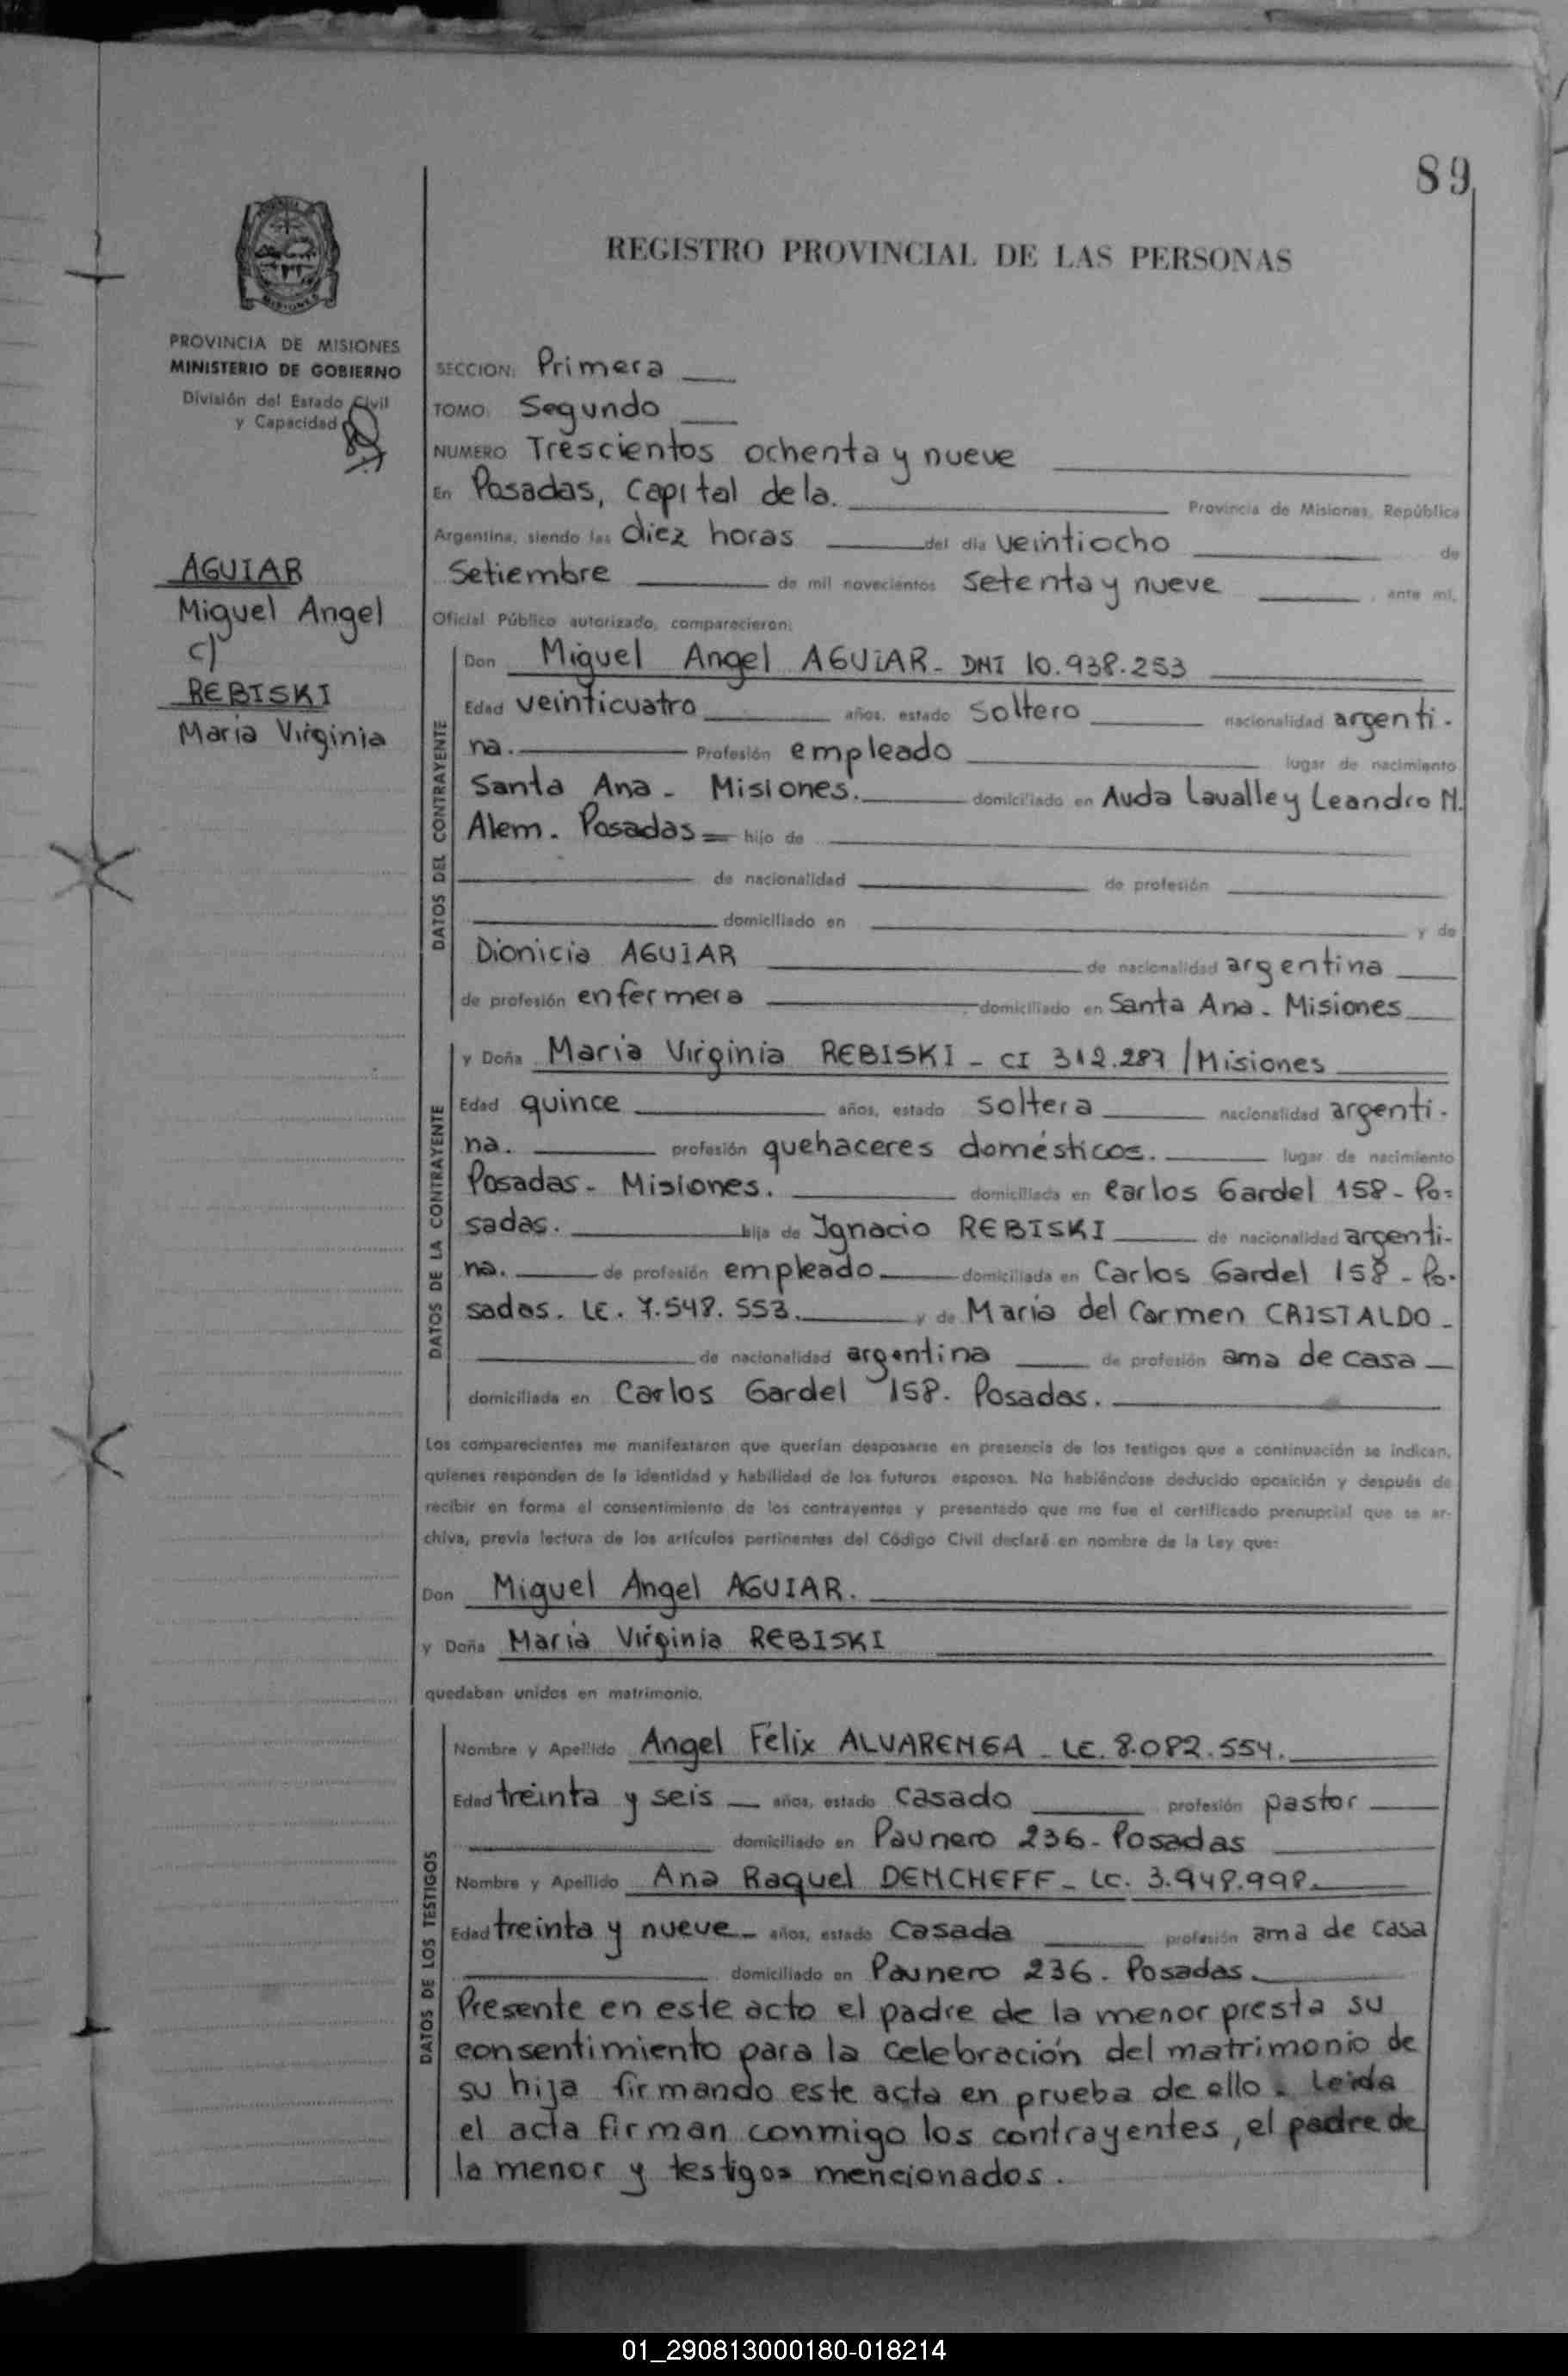 89
REGISTRO PROVINCIAL DE LAS PERSONAS
MISIONES
PROVINCIA DE MISIONES
MINISTERIO DE GOBIERNO
División del Estado Civil
y Capacidad
AGUIAR
Miguel Angel
c/
REBISKI
Maria Virginia
SECCION: Primera
TOMO: Segundo
NUMERO Trescientos ochenta y nueve
En Posadas, Capital de la. Provincia de Misiones, República
Argentina, siendo las diez horas del día veintiocho de
Setiembre de mil novecientos setenta y nueve, ante mí,
Oficial Público autorizado, comparecieron:
DATOS DEL CONTRAYENTE
Don Miguel Angel AGUIAR - DNI 10.938.253
Edad veinticuatro años, estado soltero nacionalidad argenti-
na. Profesión empleado lugar de nacimiento
Santa Ana - Misiones. domiciliado en Avda Lavalle y Leandro N.
Alem. Posadas = hijo de
de nacionalidad de profesión
domiciliado en y de
Dionicia AGUIAR de nacionalidad argentina
de profesión enfermera domiciliado en Santa Ana - Misiones
DATOS DE LA CONTRAYENTE
y Doña Maria Virginia REBISKI - CI 312.287 / Misiones
Edad quince años, estado soltera nacionalidad argenti-
na. profesión quehaceres domésticos. lugar de nacimiento
Posadas - Misiones. domiciliada en Carlos Gardel 158 - Po=
sadas. hija de Ignacio REBISKI de nacionalidad argenti-
na. de profesión empleado domiciliada en Carlos Gardel 158 - Po-
sadas. LE. 7.548.553. y de Maria del Carmen CRISTALDO -
de nacionalidad argentina de profesión ama de casa
domiciliada en Carlos Gardel 158. Posadas.
Los comparecientes me manifestaron que querían desposarse en presencia de los testigos que a continuación se indican,
quienes responden de la identidad y habilidad de los futuros esposos. No habiéndose deducido oposición y después de
recibir en forma el consentimiento de los contrayentes y presentado que me fue el certificado prenupcial que se ar-
chiva, previa lectura de los artículos pertinentes del Código Civil declaré en nombre de la Ley que:
Don Miguel Angel AGUIAR.
y Doña Maria Virginia REBISKI
quedaban unidos en matrimonio.
DATOS DE LOS TESTIGOS
Nombre y Apellido Angel Félix ALVARENGA - LE. 8.082.554.
Edad treinta y seis años, estado casado profesión pastor
domiciliado en Paunero 236 - Posadas
Nombre y Apellido Ana Raquel DEMCHEFF - LC. 3.948.998.
Edad treinta y nueve - años, estado casada profesión ama de casa
domiciliado en Paunero 236. Posadas.
Presente en este acto el padre de la menor presta su
consentimiento para la celebración del matrimonio de
su hija firmando este acta en prueba de ello. Leida
el acta firman conmigo los contrayentes, el padre de
la menor y testigos mencionados.
01_290813000180-018214